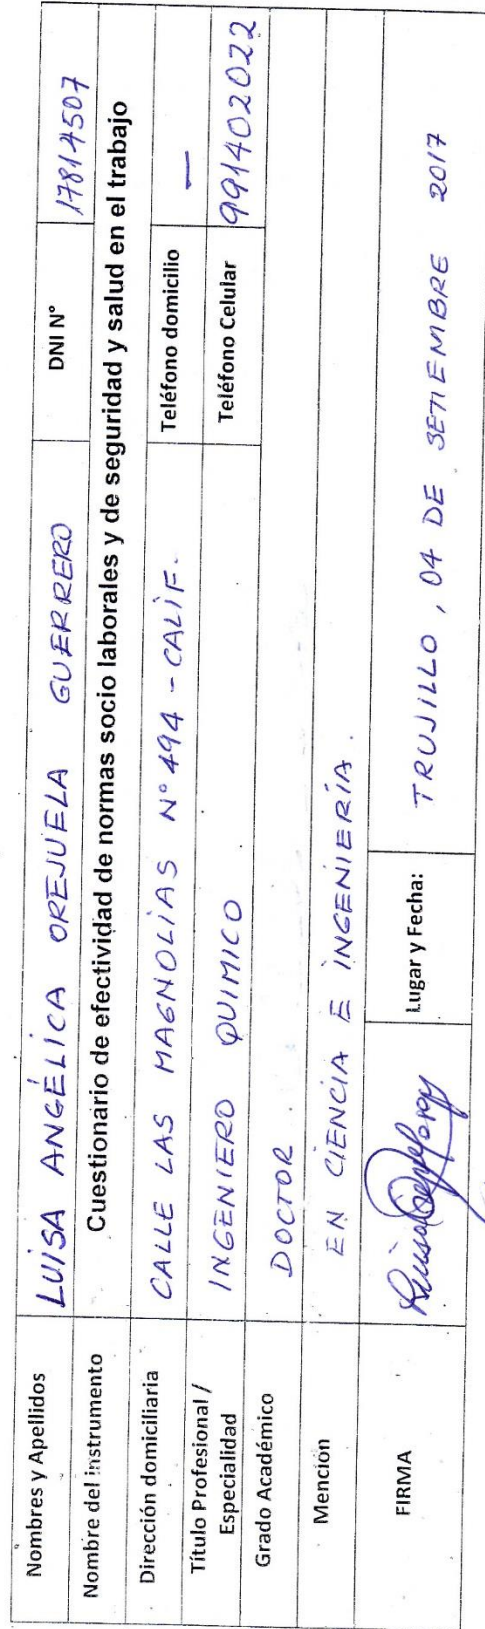 Nombres y Apellidos LUISA ANGÉLICA OREJUELA GUERRERO DNI N° 17814507
Nombre del instrumento Cuestionario de efectividad de normas socio laborales y de seguridad y salud en el trabajo
Dirección domiciliaria CALLE LAS MAGNOLIAS N° 494 - CALIF. Teléfono domicilio —
Título Profesional / Especialidad INGENIERO QUIMICO Teléfono Celular 991402022
Grado Académico DOCTOR
Mención EN CIENCIA E INGENIERÍA.
FIRMA Lugar y Fecha: TRUJILLO, 04 DE SETIEMBRE 2017